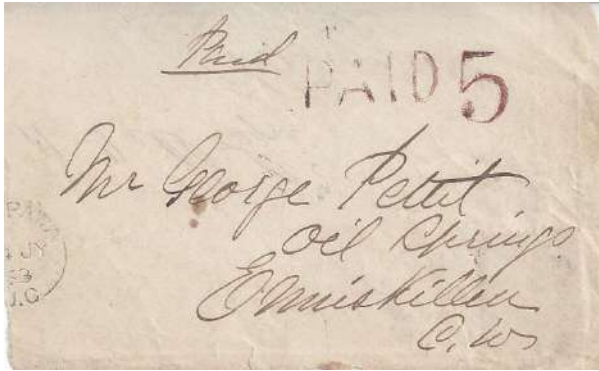 Paid
PAID 5
Mr George Pettit
Oil Springs
Enniskillen
C. W.
JY
U.C